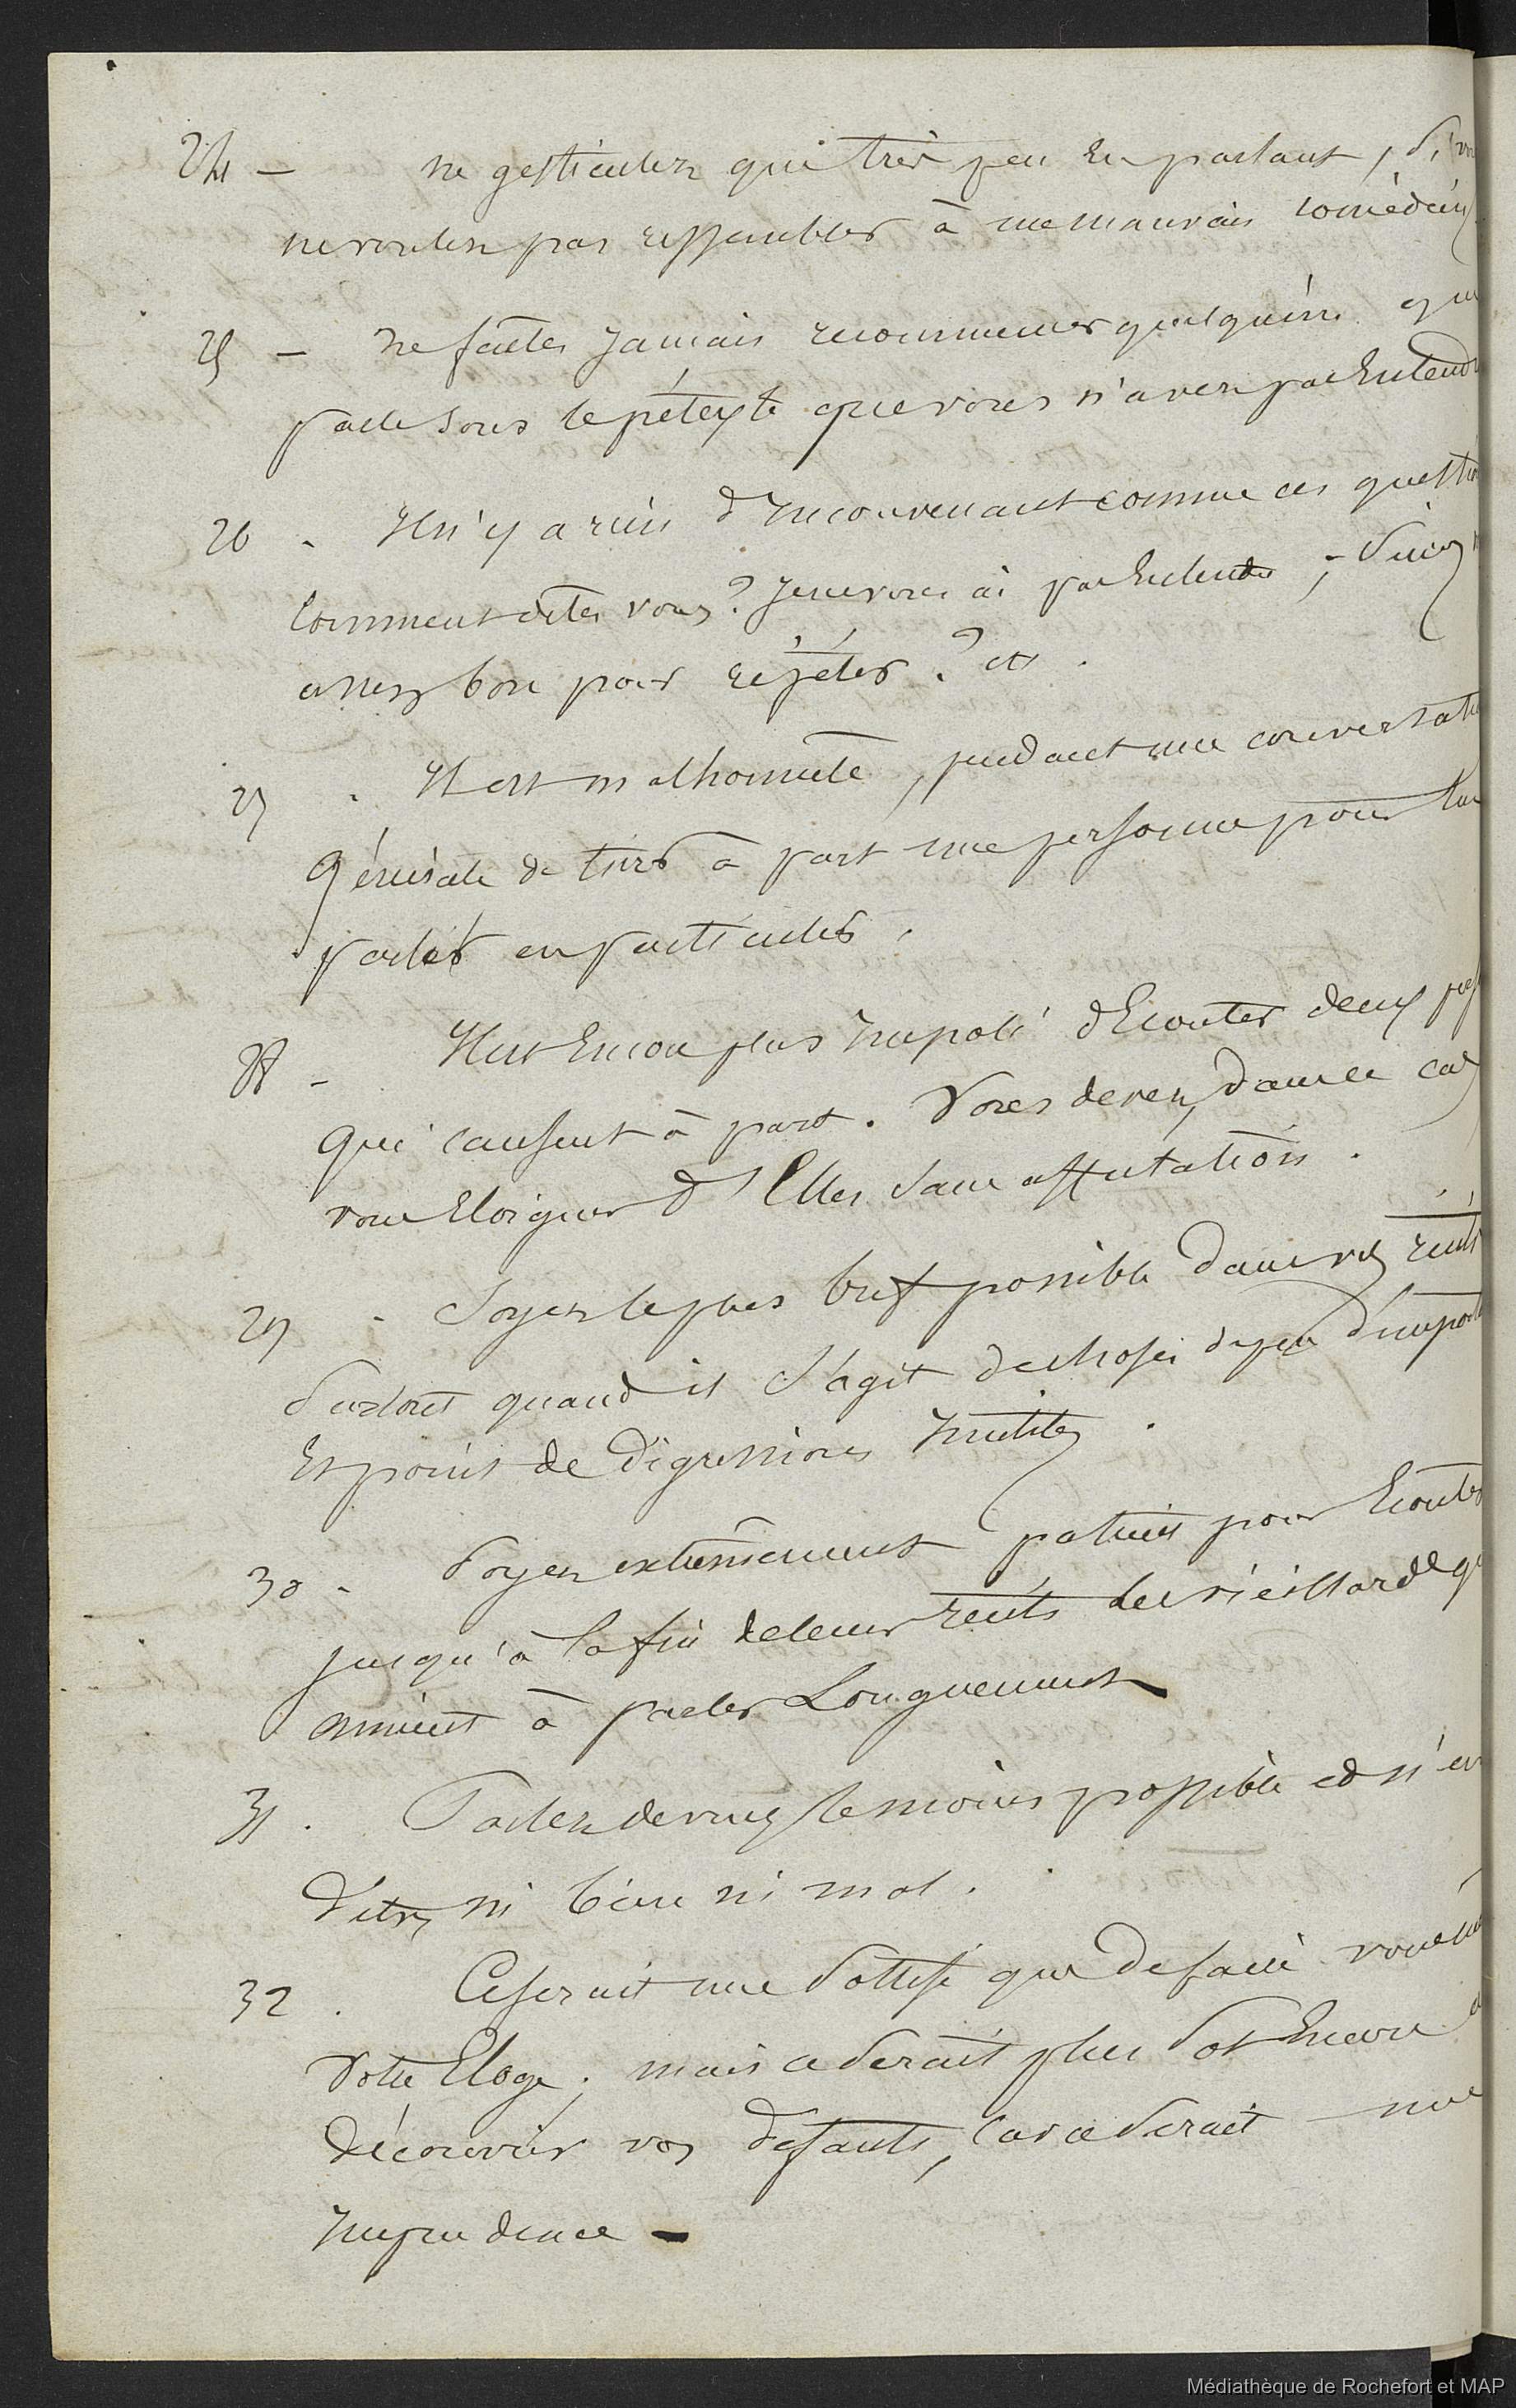 24 - ne gesticulez que très peu En parlant, si vo
ne voulez pas ressembler à une mauvais comédien
25 - Ne faites Jamais recommencer quelqu'un qui
parle sous le prétexte que vous n'avez pas Entendu
26 - Il n'y a rien d'Inconvenant comme ces questio
Comment dites vous? Je ne vous ai pas Entendu; Soiez
assez bon pour répéter? etc.
27 . Il est malhonnête, pendant une conversatio
Générale de tirer à part une personne pour lui
parler en particulier.
28 - Il est Encore plus Impoli d'Ecouter deux pers
qui causent à part. Vous devez, dans ce cas
vous Eloigner d'Elles sans affectation.
29 - Soyez le plus bref possible dans vos récits
Surtout quand il s'agit de choses de peu d'import
Et point de Digressions Inutiles.
30 - Soyez extrêmement patient pour Ecouter
jusqu'à la fin de leurs récits des vieillards q
aiment à parler Longuement
31 . Parlez de vous le moins possible et n'en
dites ni bien ni mal.
32 . Ce serait une Sottise que de faire vous
Votre Eloge; mais ce serait plus sot Encore d
découvrir vos défauts, car ce serait une
Imprudence -
Médiathèque de Rochefort et MAP